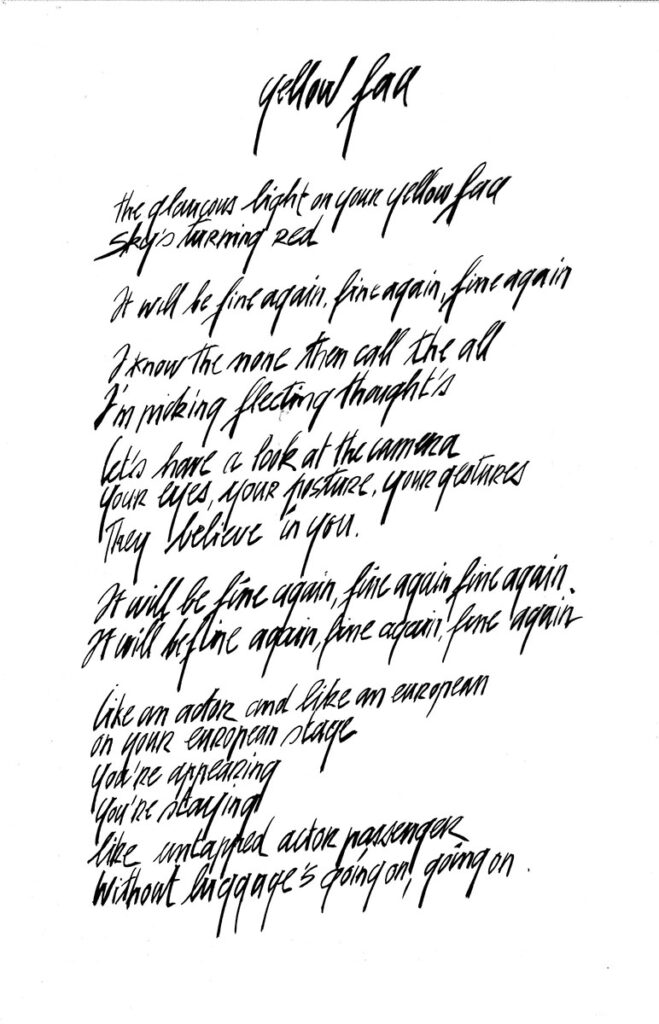 yellow face
the glaucous light on your yellow face
sky's turning red
It will be fine again, fine again, fine again
I know the none then call the all
I'm pick'ing fleeting thought's
let's have a look at the camera
your eyes, your posture, your gestures
They believe in you.
It will be fine again, fine again fine again.
It will be fine again, fine again, fine again
like an actor and like an european
on your european stage
you're appearing
you're staying
like untapped actor passenger
Without luggage's going on, going on.